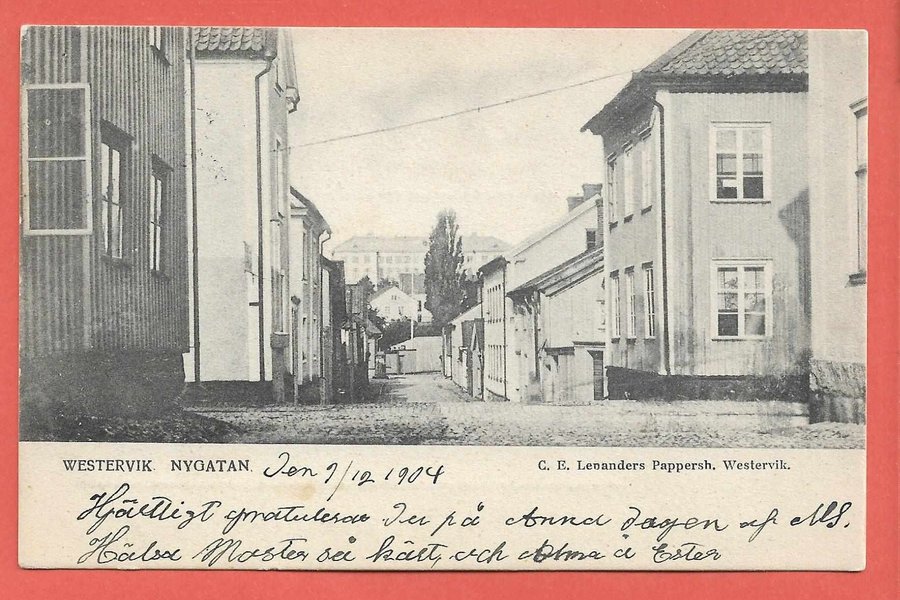 WESTERVIK. NYGATAN. Den 9/12 1904
C. E. Lenanders Pappersh. Westervik.
Hjärtligt gratuleras du på Anna dagen af MS.
Hälsa Moster så kärt, och Alma o Ester